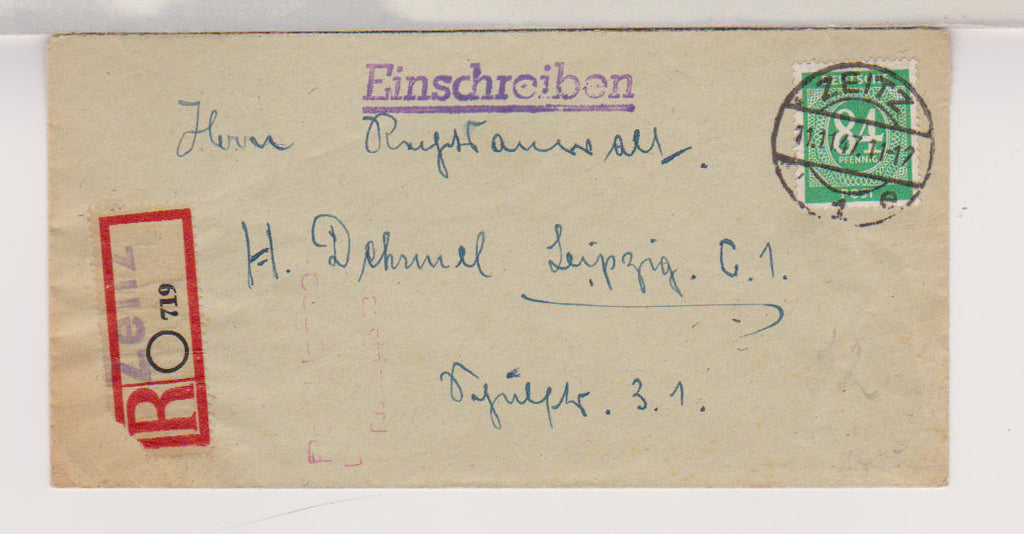 Einschreiben
DEUTSCHE
84
PFENNIG
POST
ZEITZ
11.11.47.11-12
1 e
Herrn Rechtsanwalt.
H. Dehmel Leipzig. C. 1.
Schulstr. 3. 1.
Zeitz
719
R
12